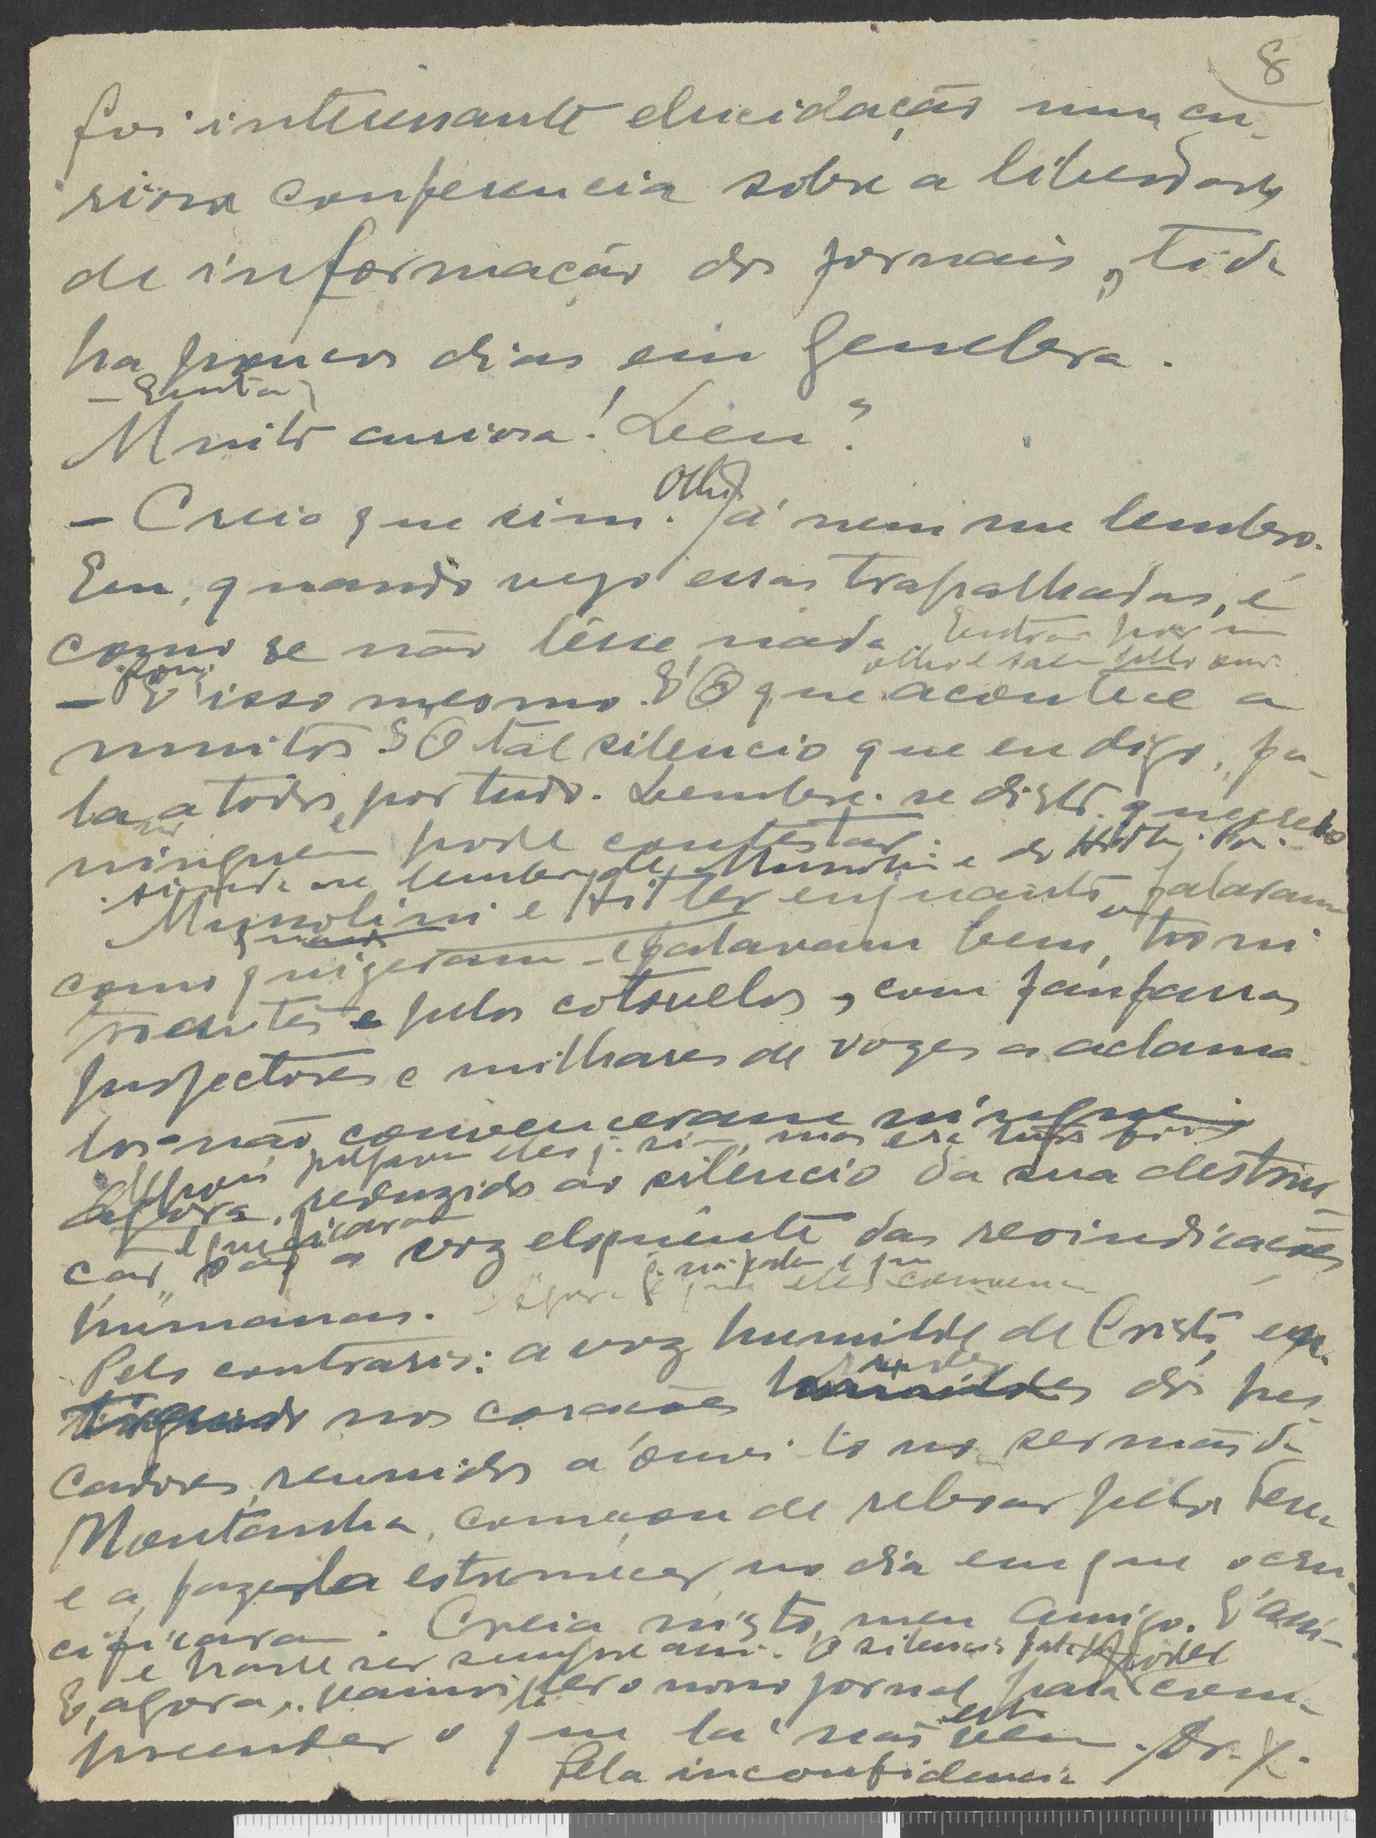 8
foi interessante elucidação numa cu-
riosa conferencia sobre a liberdade
de informação dos jornais, tida
ha poucos dias em Genebra.
Muito curiosa! Leu?
- Creio que sim. Olhe Já nem me lembro.
Eu, quando vejo essas trapalhadas, é
como se não lêsse nada. Entra por um
olho e sai pelo outro.
- É isso mesmo. É o que acontece a
muitos. O tal silencio que eu digo, fa-
la a todos, por tudo. Lembre-se disto que
ninguem pode contestar.
Mussolini e Hitler enquanto falaram
como quizeram e falavam bem,
e pelos cotovelos, com fanfarras
projectores e milhares de vozes a aclama-
los não convenceram ninguem
Agora, reduzidos ao silêncio da sua destrui-
ção, a voz eloquente das reivindicações
humanas.
Pelo contrario: a voz humilde de Cristo,
nos corações rudes dos pes-
cadores, reunidos a ouvi-lo no sermão da
Montanha, começou de reboar pela Terra
e a fazê-la estremecer no dia em que o cru-
cificaram. Creia nisto, meu Amigo. É assi-
e ha-de ser sempre assim. O silencio
E, agora, vamos ler o nosso jornal para com-
preender o que lá não vem. Dr. X.
Pela inconfidencia